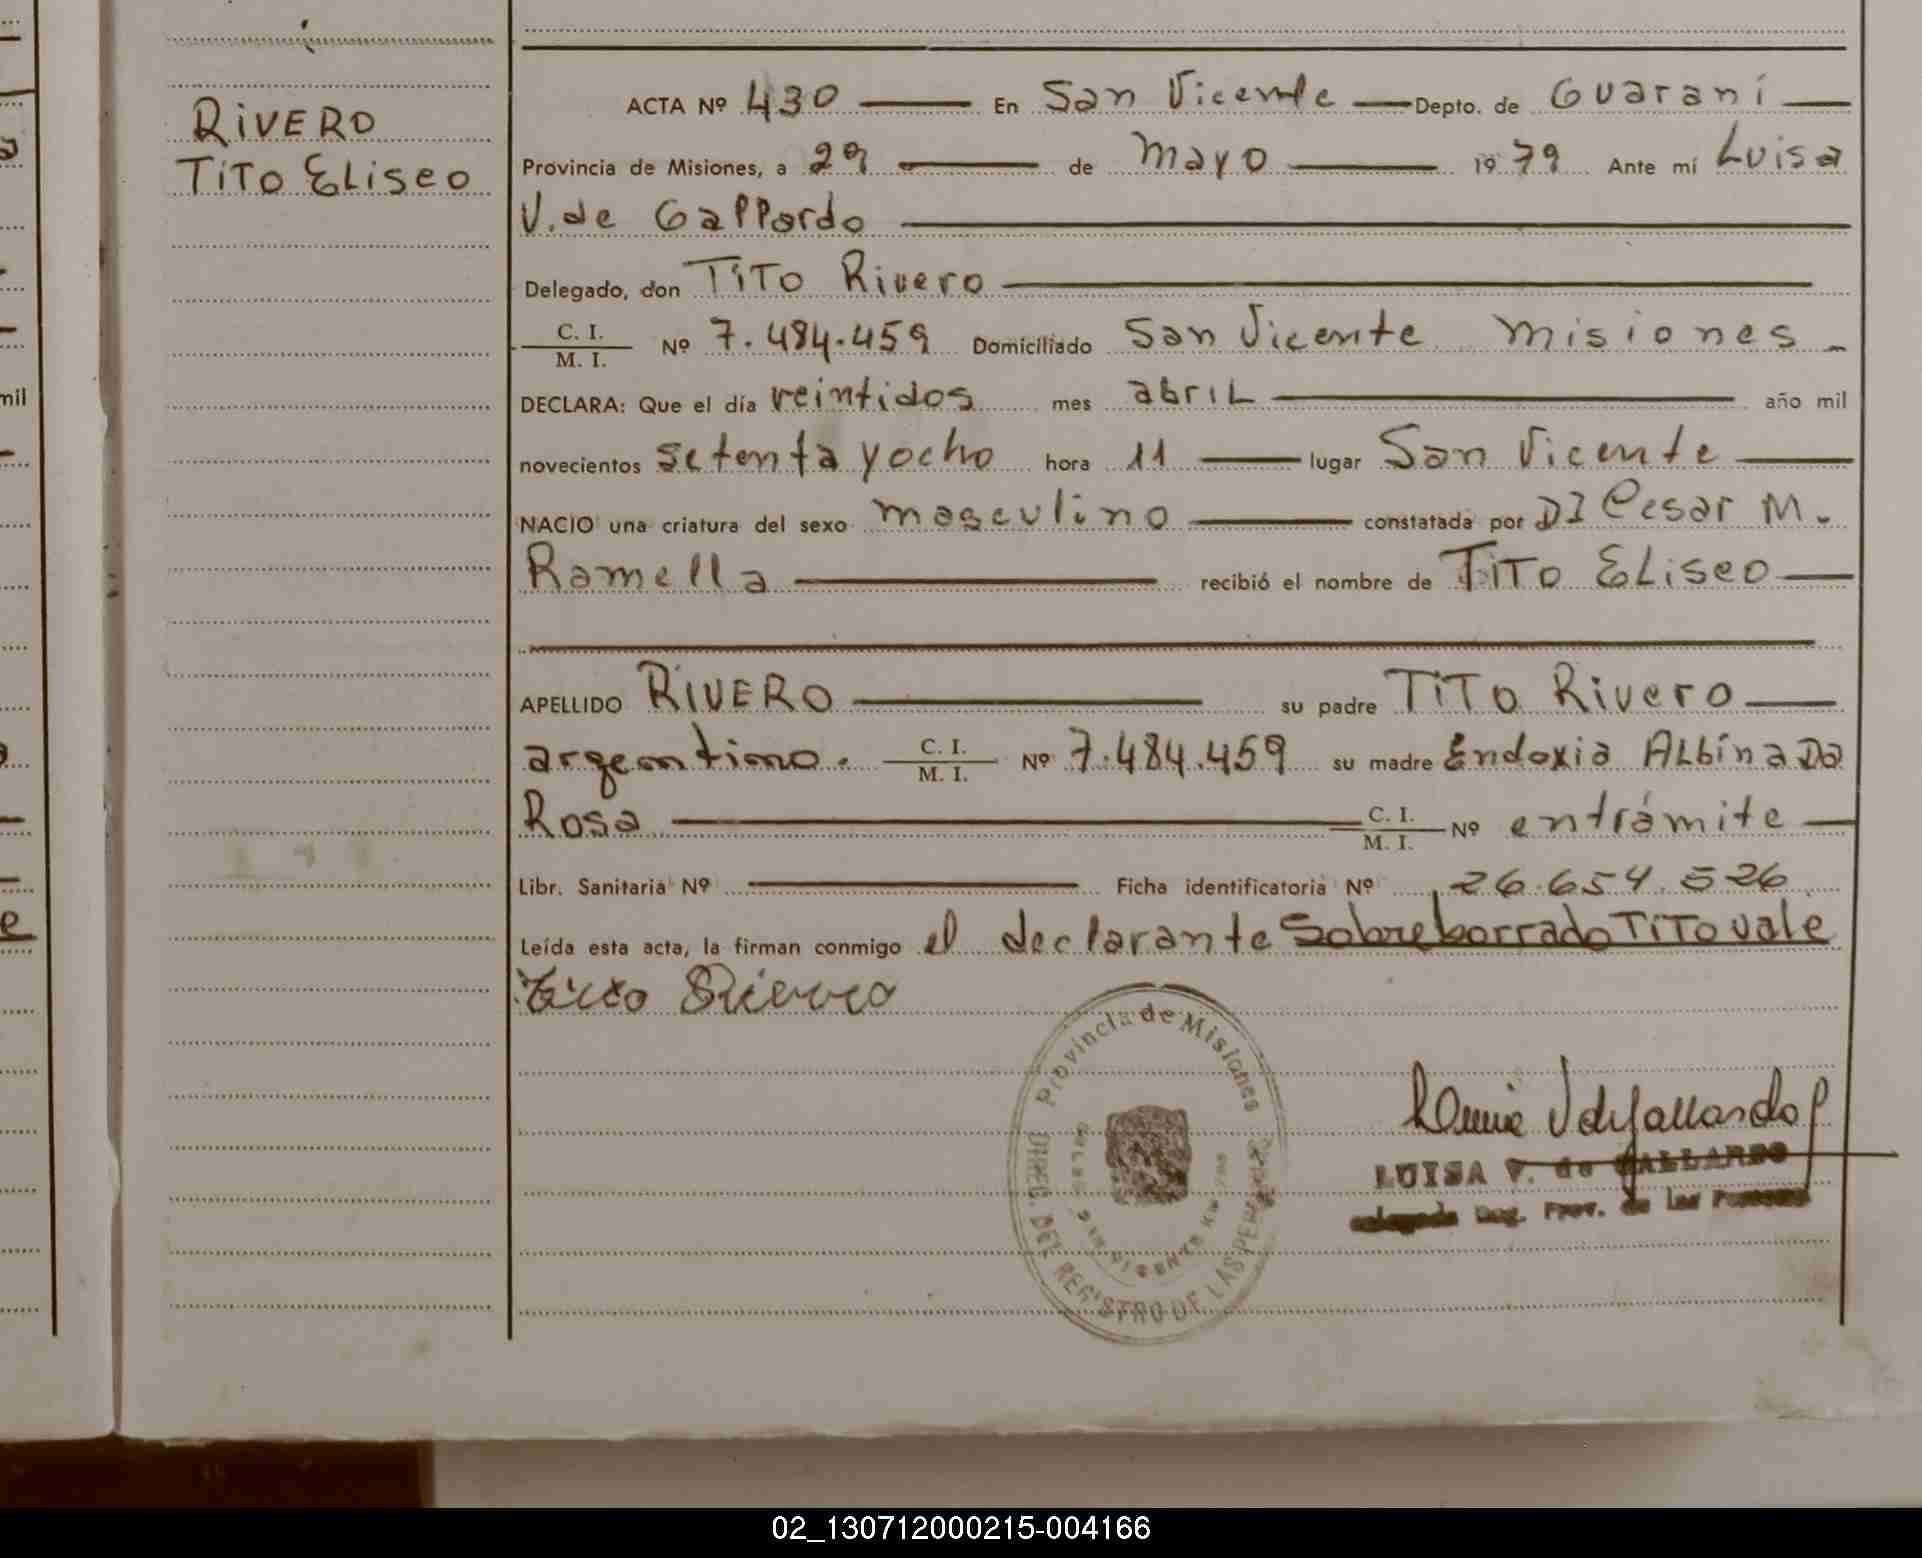 RIVERO
TITO ELISEO
ACTA Nº 430 En San Vicente Depto. de Guaraní
Provincia de Misiones, a 29 de Mayo 1979 Ante mí Luisa
V. de Gallardo
Delegado, don TITO Rivero
C. I.
M. I.
Nº 7.484.459 Domiciliado San Vicente Misiones
DECLARA: Que el día veintidos mes abril año mil
novecientos setenta y ocho hora 11 lugar San Vicente
NACIO una criatura del sexo masculino constatada por DI Cesar M.
Ramella recibió el nombre de TITO ELISEO
APELLIDO RIVERO su padre TITO Rivero
argentino. C. I.
M. I.
Nº 7.484.459 su madre Endoxia Albina Da
Rosa C. I.
M. I.
Nº entrámite
Libr. Sanitaria Nº Ficha identificatoria Nº 26.654.526
Leída esta acta, la firman conmigo el declarante Sobreborrado TITO vale
Tito Rivero
Provincia de Misiones
DIREC. DEL REGISTRO DE LAS PERSONAS
LUISA V. de GALLARDO
Reg. Prov. de las Personas
mil
e
02_130712000215-004166